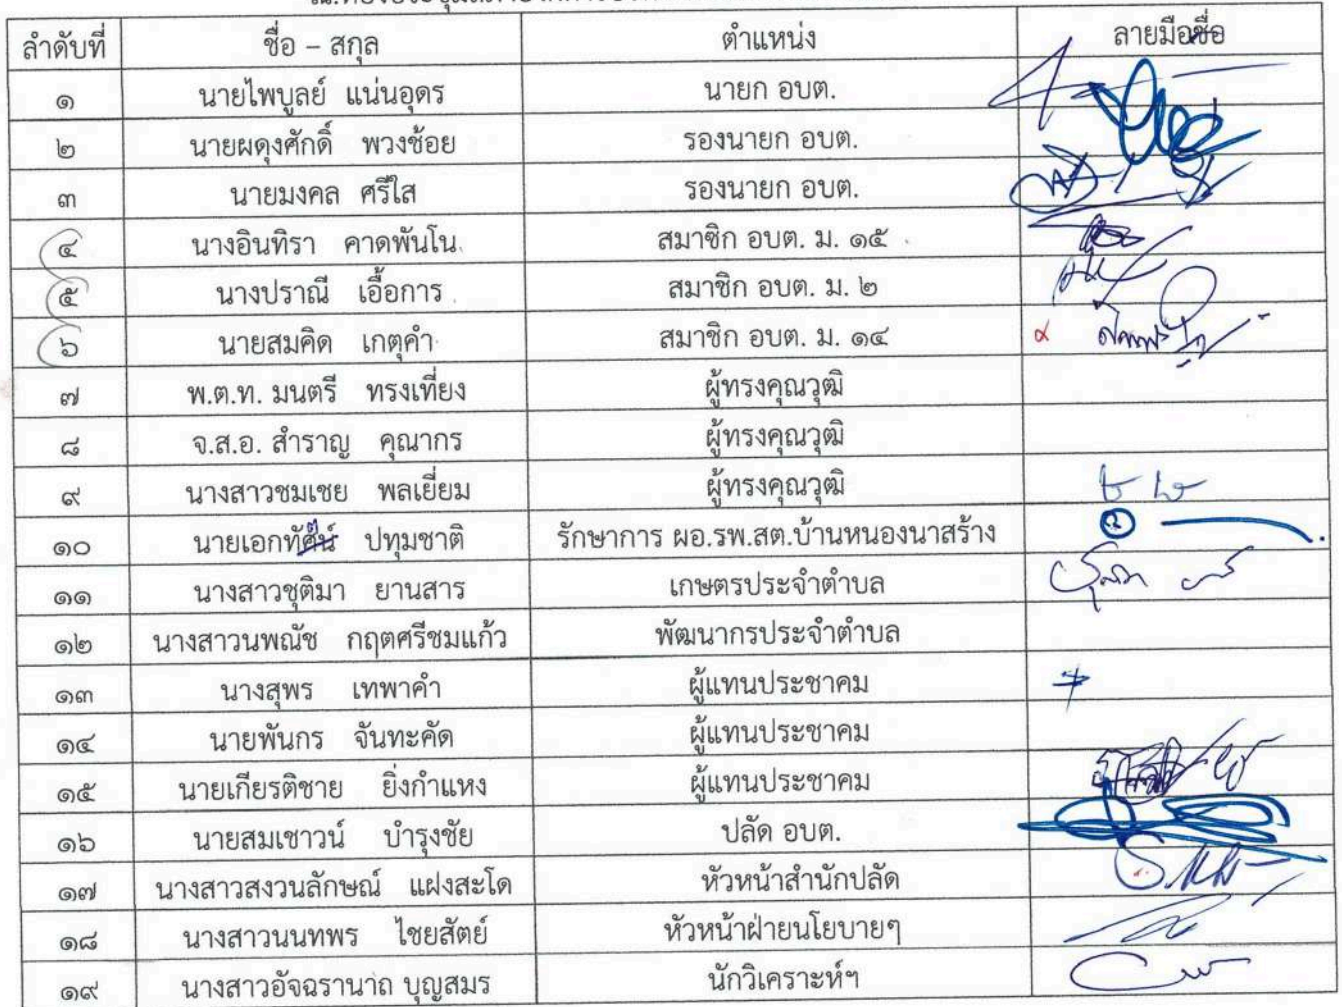 ลำดับที่ ชื่อ – สกุล ตำแหน่ง ลายมือชื่อ
๑ นายไพบูลย์ แน่นอุดร นายก อบต.
๒ นายผดุงศักดิ์ พวงช้อย รองนายก อบต.
๓ นายมงคล ศรีใส รองนายก อบต.
๔ นางอินทิรา คาดพันโน สมาชิก อบต. ม. ๑๕
๕ นางปราณี เอื้อการ สมาชิก อบต. ม. ๒
๖ นายสมคิด เกตุคำ สมาชิก อบต. ม. ๑๔
๗ พ.ต.ท. มนตรี ทรงเที่ยง ผู้ทรงคุณวุฒิ
๘ จ.ส.อ. สำราญ คุณากร ผู้ทรงคุณวุฒิ
๙ นางสาวชมเชย พลเยี่ยม ผู้ทรงคุณวุฒิ
๑๐ ปทุมชาติ รักษาการ ผอ.รพ.สต.บ้านหนองนาสร้าง
๑๑ นางสาวชุติมา ยานสาร เกษตรประจำตำบล
๑๒ นางสาวนพณัช กฤตศรีชมแก้ว พัฒนากรประจำตำบล
๑๓ นางสุพร เทพาคำ ผู้แทนประชาคม
๑๔ นายพันกร จันทะคัด ผู้แทนประชาคม
๑๕ นายเกียรติชาย ยิ่งกำแหง ผู้แทนประชาคม
๑๖ นายสมเชาวน์ บำรุงชัย ปลัด อบต.
๑๗ นางสาวสงวนลักษณ์ แฝงสะโด หัวหน้าสำนักปลัด
๑๘ นางสาวนนทพร ไชยสัตย์ หัวหน้าฝ่ายนโยบายๆ
๑๙ นางสาวอัจฉรานาถ บุญสมร นักวิเคราะห์ฯ